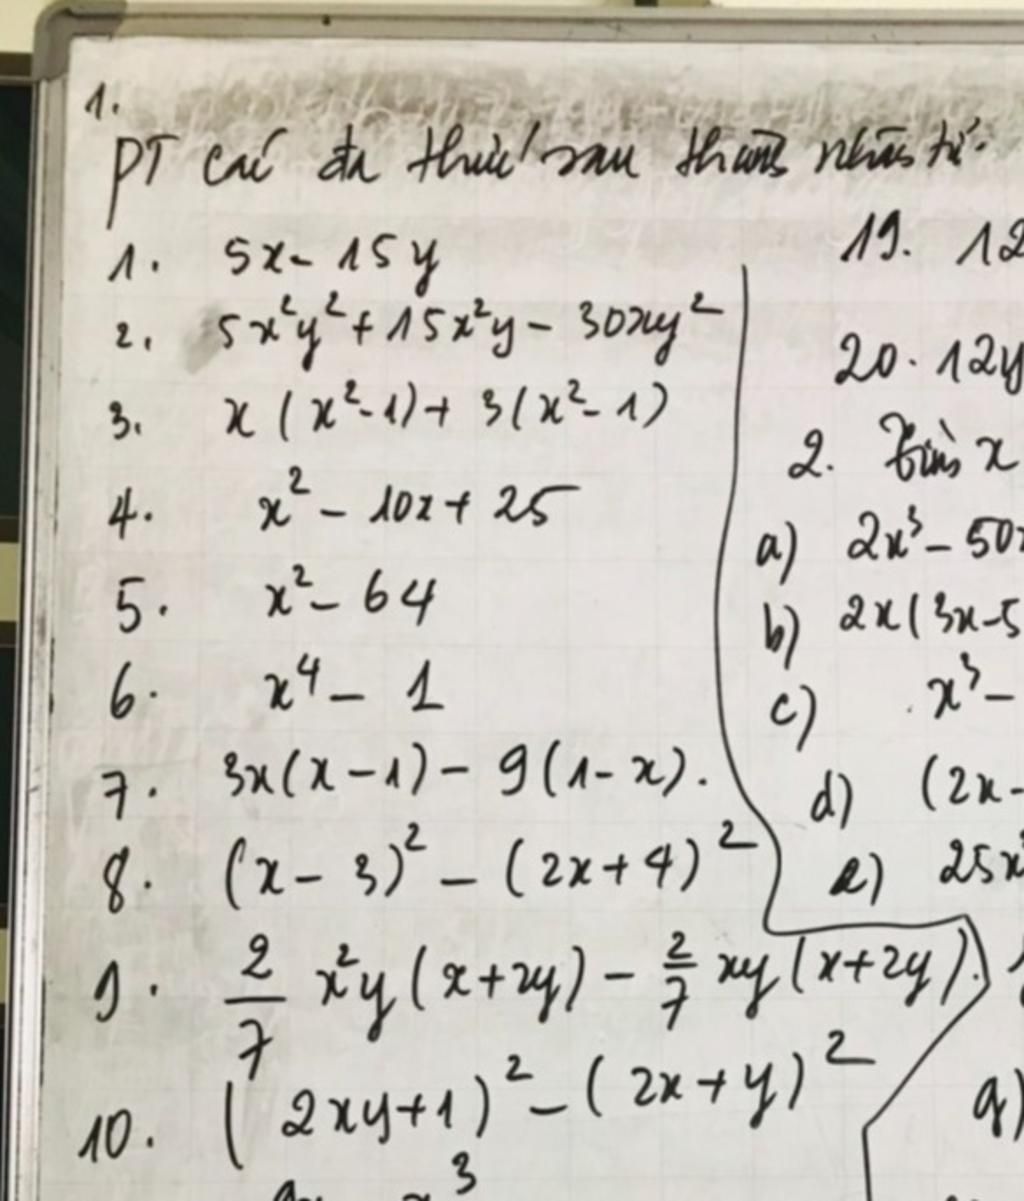 1.
PT các đa thức sau thành nhân tử.
1. 5x - 15y
2. 5x²y² + 15x²y - 30xy²
3. x(x²-1) + 3(x²-1)
4. x² - 10x + 25
5. x² - 64
6. x⁴ - 1
7. 3x(x-1) - 9(1-x).
8. (x-3)² - (2x+4)²
9. 2/7 x²y(x+2y) - 2/7 xy(x+2y).
10. (2xy+1)² - (2x+y)²
19. 12
20. 12y
2. Tìm x
a) 2x³ - 50x
b) 2x(3x-5
c) x³ -
d) (2x -
e) 25x²
g)